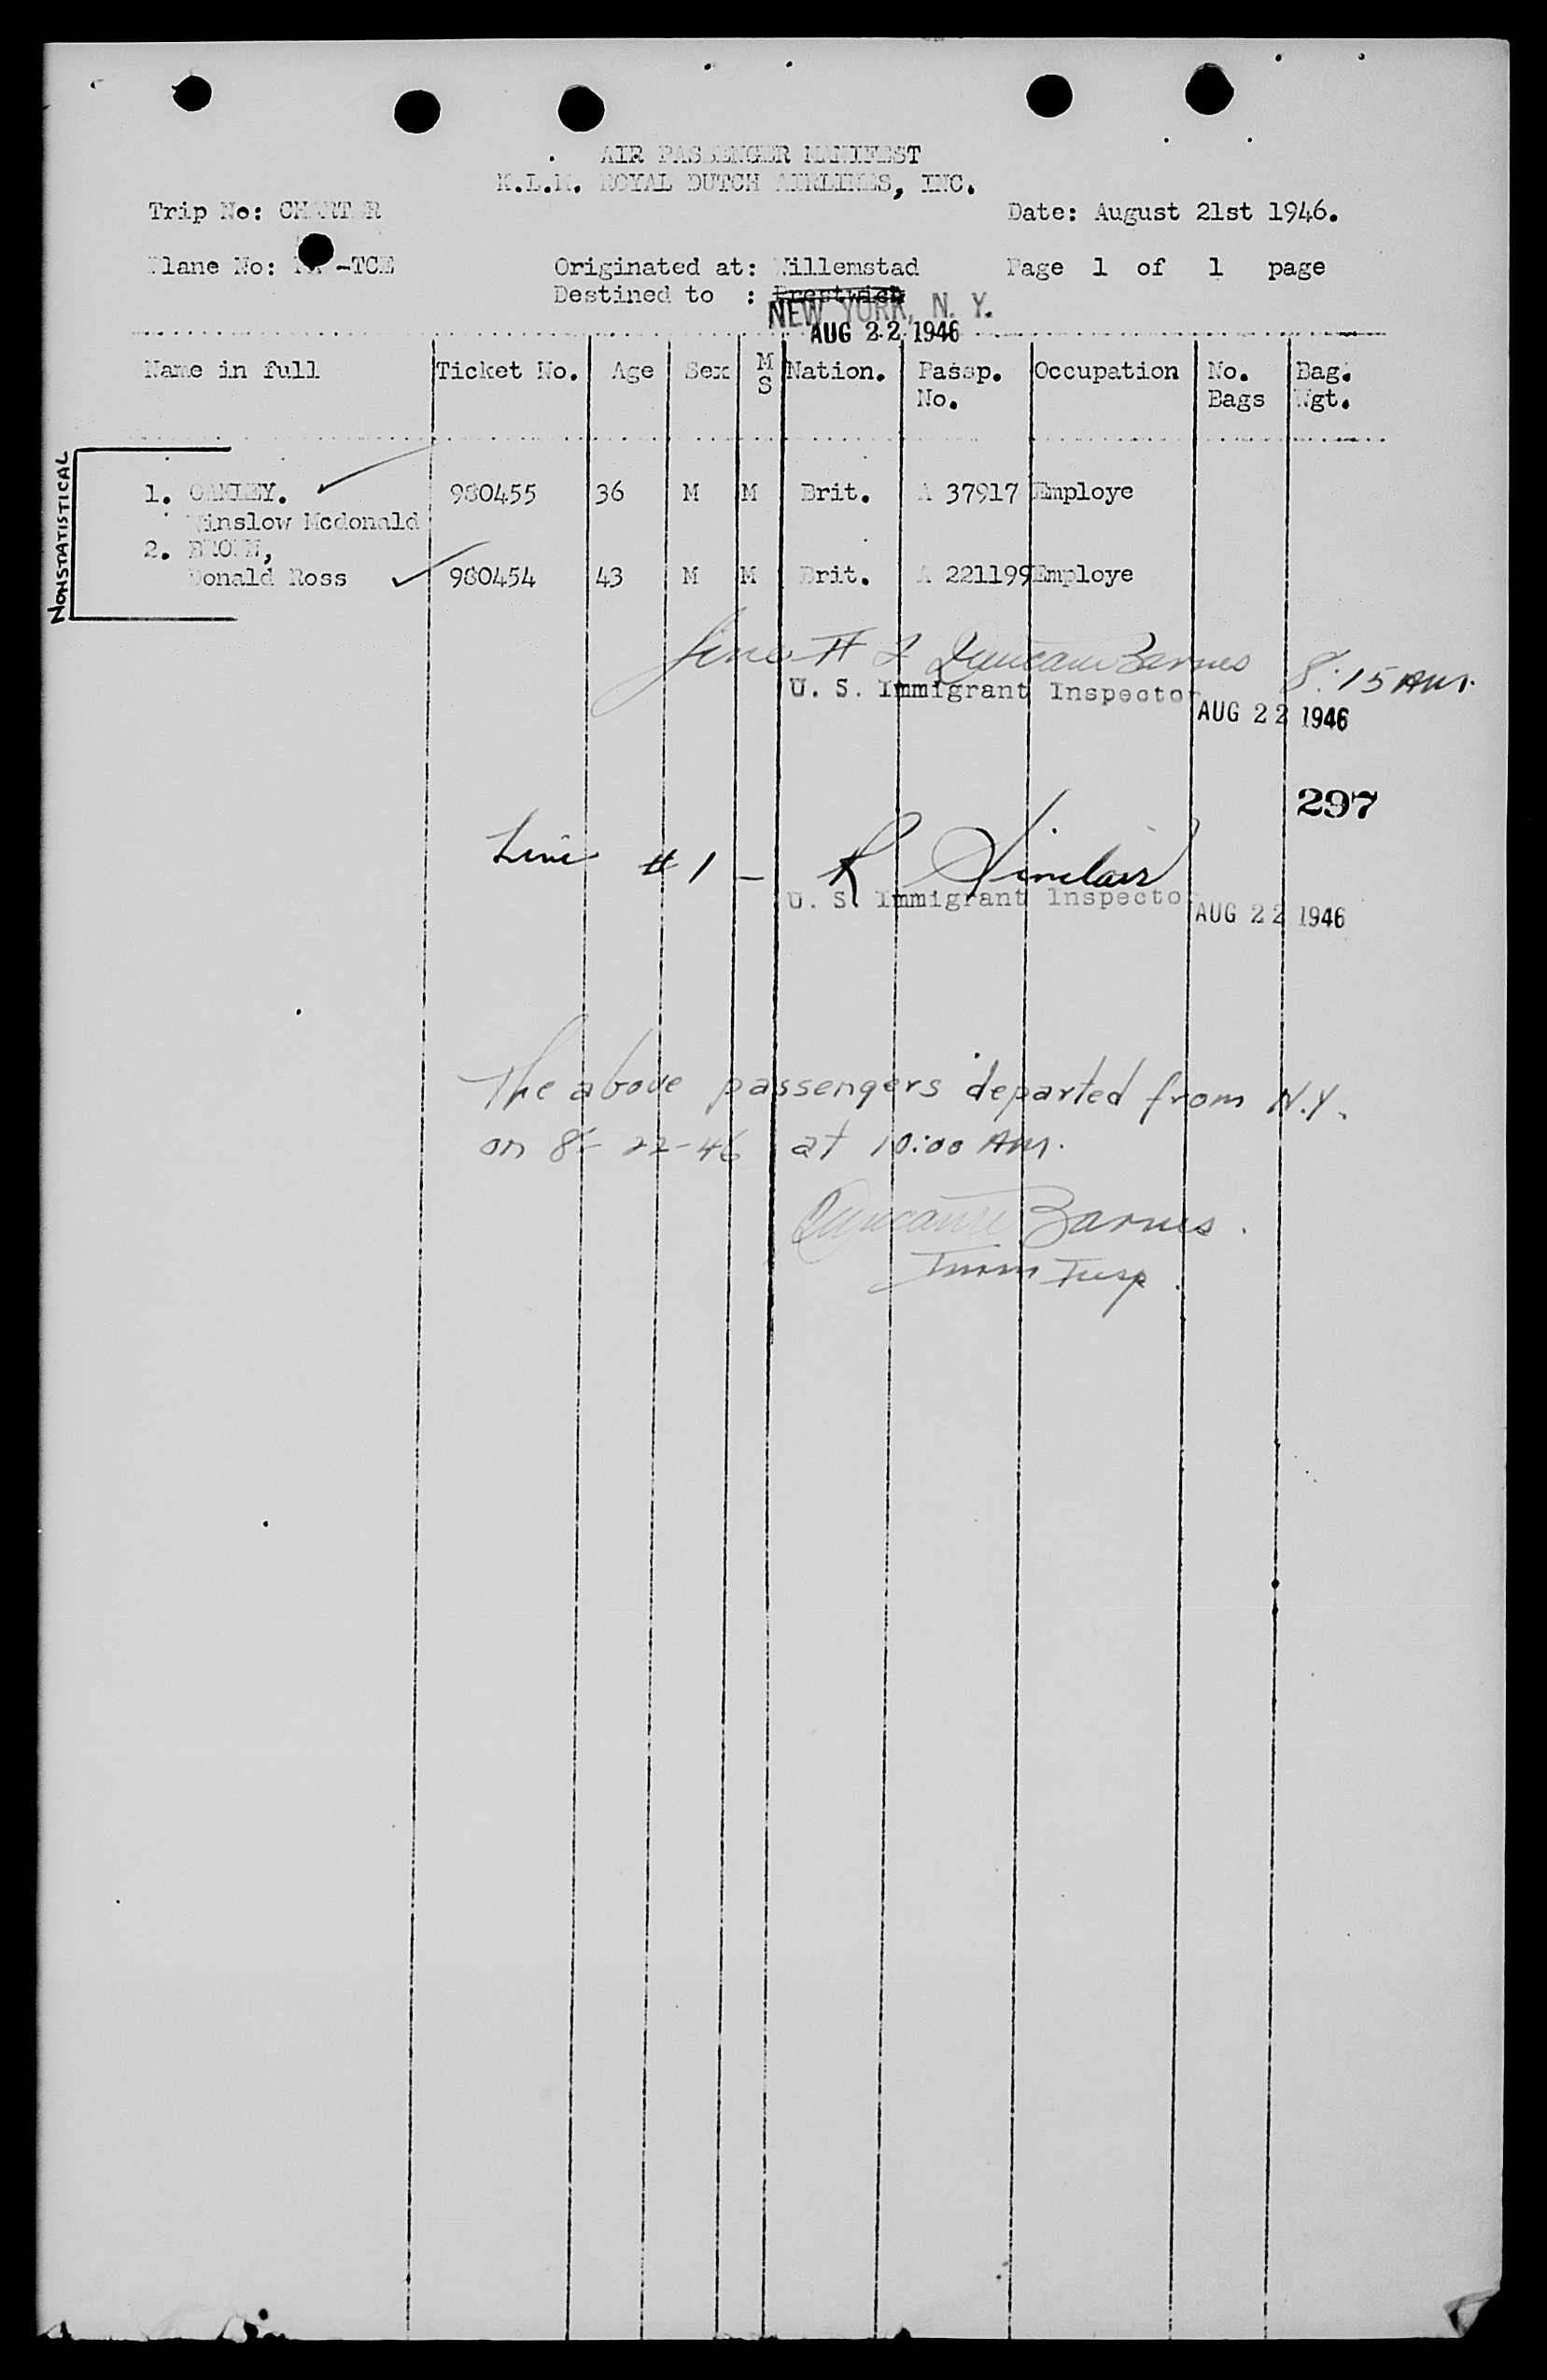 AIR PASSENGER MANIFEST
K.L.M. ROYAL DUTCH AIRLINES, INC.
Trip No: CHARTER
Date: August 21st 1946.
Plane No: -TCE
Originated at: Willemstad
Page 1 of 1 page
Destined to : Prestwick
NEW YORK, N. Y.
AUG 22 1946
Name in full Ticket No. Age Sex M S Nation. Passp. No. Occupation No. Bags Bag. Wgt.
NONSTATISTICAL
1. OAKLEY. 980455 36 M M Brit. A 37917 Employe
Winslow Mcdonald
2. BROWN,
Donald Ross 980454 43 M M Brit. A 221199 Employe
Line # 2 Barnes 8:15 AM.
U. S. Immigrant Inspector
AUG 22 1946
297
Line #1 - R Sinclair
U. S. Immigrant Inspector
AUG 22 1946
The above passengers departed from N.Y.
on 8-22-46 at 10:00 AM.
Barnes.
Imm Insp.